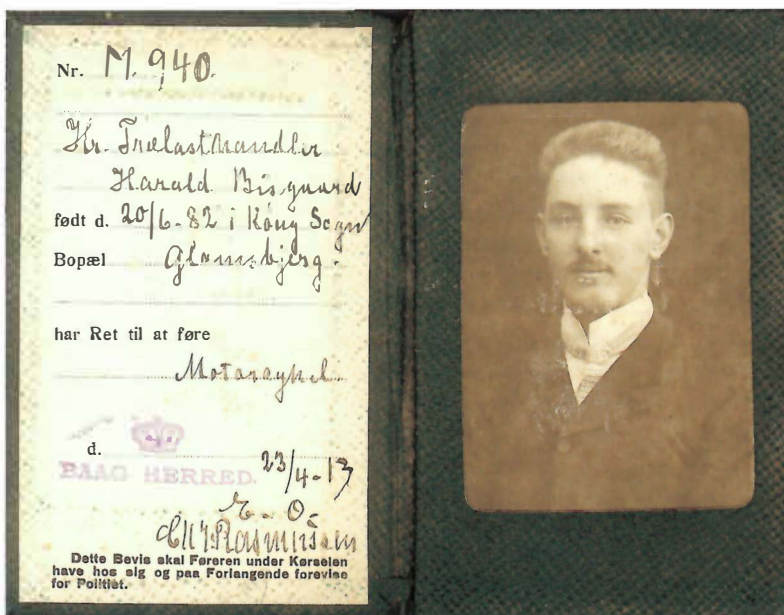 Nr. M. 940.
Hr. Trælasthandler
Harald Bisgaard
født d. 20/6-82 i Køng Sogn
Bopæl Glamsbjerg.
har Ret til at føre
Motorcykel
d. 23/4-13
BAAG HERRED.
E. O.
Rasmussen
Dette Bevis skal Føreren under Kørselen
have hos sig og paa Forlangende forevise
for Politiet.